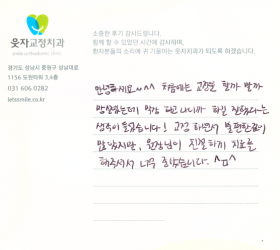 웃자교정치과
경기도 성남시 중원구 성남대로
1156 도원타워 3,4층
031 606 0282
letssmile.co.kr
소중한 후기 감사드립니다.
함께 할 수 있었던 시간에 감사하며,
환자분들의 소리에 귀 기울이는 웃자교정치과가 되도록 하겠습니다.
안녕하세요~^^ 처음에는 교정을 할까 말까
망설였는데 막상 하고 나니까 하길 잘했다는
생각이 들었습니다! 교정 하면서 불편한점이
많았지만, 원장님이 친절하게 치료를
해주셔서 너무 좋았습니다. ^ㅁ^